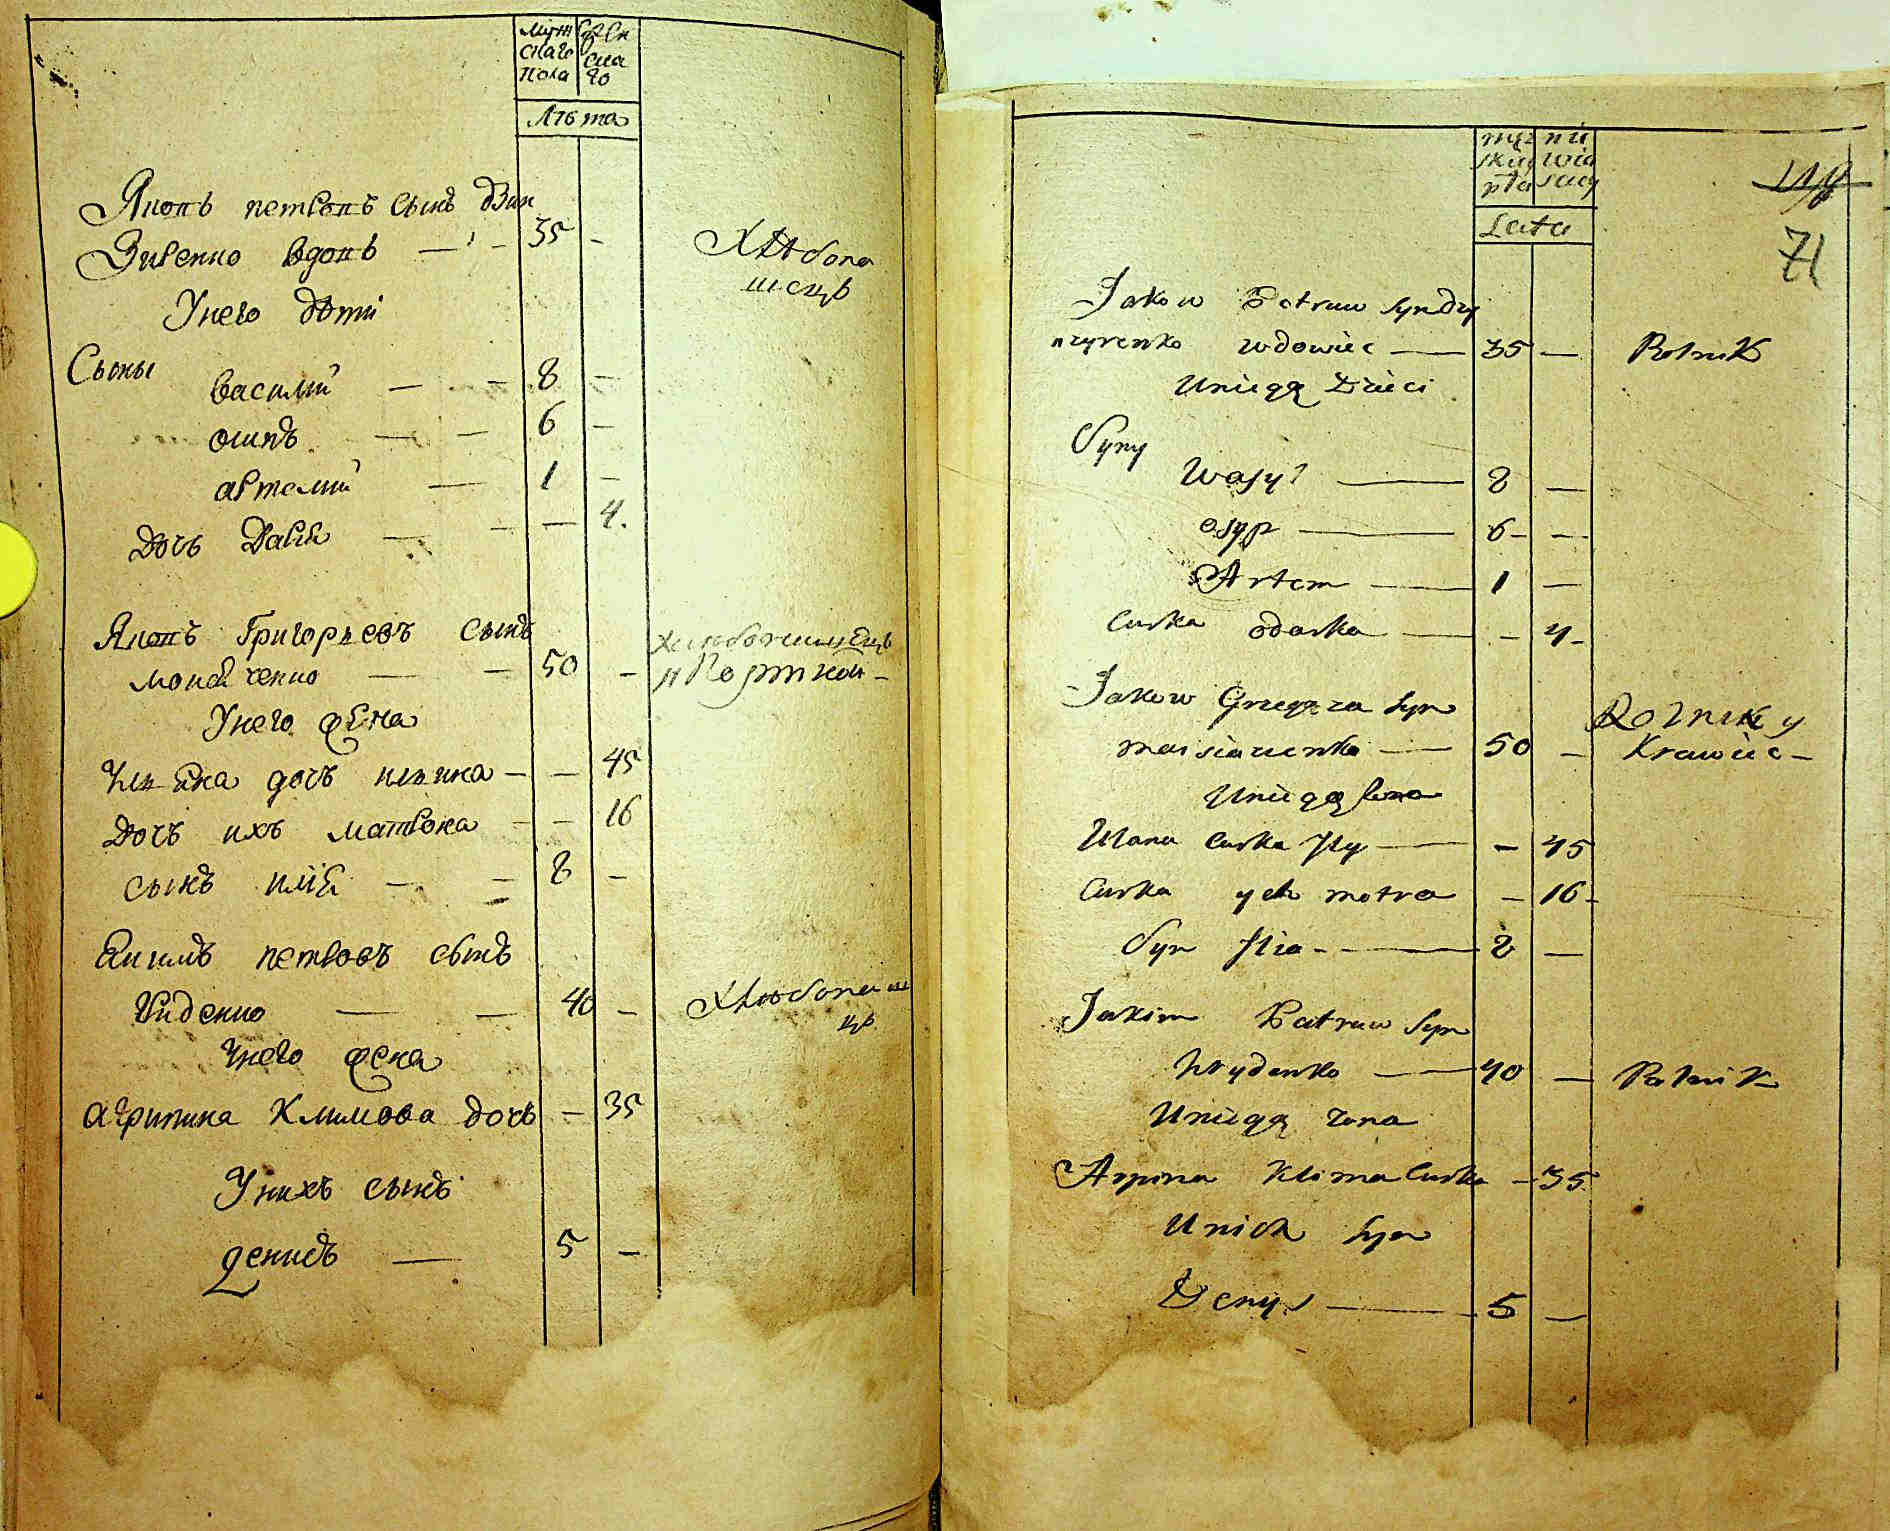 муж
скаго
пола
женска
го
Лѣта
Яковъ петровъ сынъ Дзи
Зиренко вдовъ — 35 -
Хлѣбопа
шецъ
У него дѣти
Сыны
василий — - 8 —
осипъ — — 6 —
артемий — 1 —
дочь Дарія — - — 4.
Яковъ Григорьевъ сынъ
моисѣенко — - 50 -
хлѣбопашецъ
и Портной -
У него жена
дочь ильина - — 45
дочь ихъ матрона - — 16
сынъ илія - - 8 —
Якимъ петровъ сынъ
Руденко — — 40 -
Хлѣбопаш
цъ
У него жена
агрипина Климова дочь — 35
У нихъ сынъ
денисъ — 5 —
męz
skiey
płci
nie
wia
sciey
Lata
71
Jakow Petruw syn Dzy
nzyrenko wdowiec — 35 — Rolnik
Uniegą Dzieci
Syny
Wasyl — 8 —
osyp — 6 - —
Artem — 1 —
Curka odarka — - 4 -
Jakow Gregora Syn
moisiaienko — 50 —
Rolnik y
Krawiec -
Uniegą żona
Ulana Curka Jly — - 45
Curka ych motra — 16 -
Syn Jlia - — 8 —
Jakim Petruw Syn
Rydenko — 40 — Rolnik
Uniegą zona
Arpina Klima Curka — 35
Unich Syn
Denys — 5 —